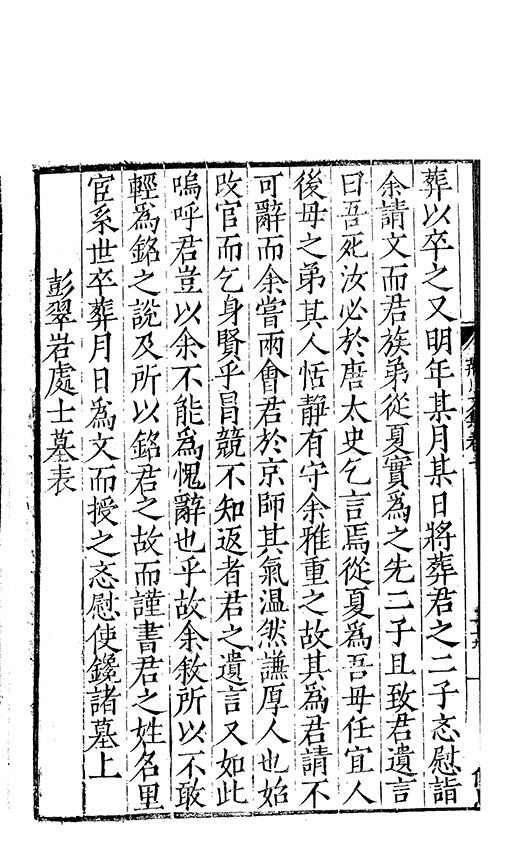 葬以卒之又明年某月某日將葬君之二子忞慰詣
余請文而君族弟從夏實爲之先二子且致君遺言
曰吾死汝必於唐太史乞言焉從夏爲吾母任宜人
後母之弟其人恬靜有守余雅重之故其爲君請不
可辭而余嘗兩會君於京師其氣溫然謙厚人也始
改官而乞身賢乎冒競不知返者君之遺言又如此
嗚呼君豈以余不能爲愧辭也乎故余敘所以不敢
輕爲銘之說及所以銘君之故而謹書君之姓名里
宦系世卒葬月日爲文而授之忞慰使鑱諸墓上
彭翠岩處士墓表